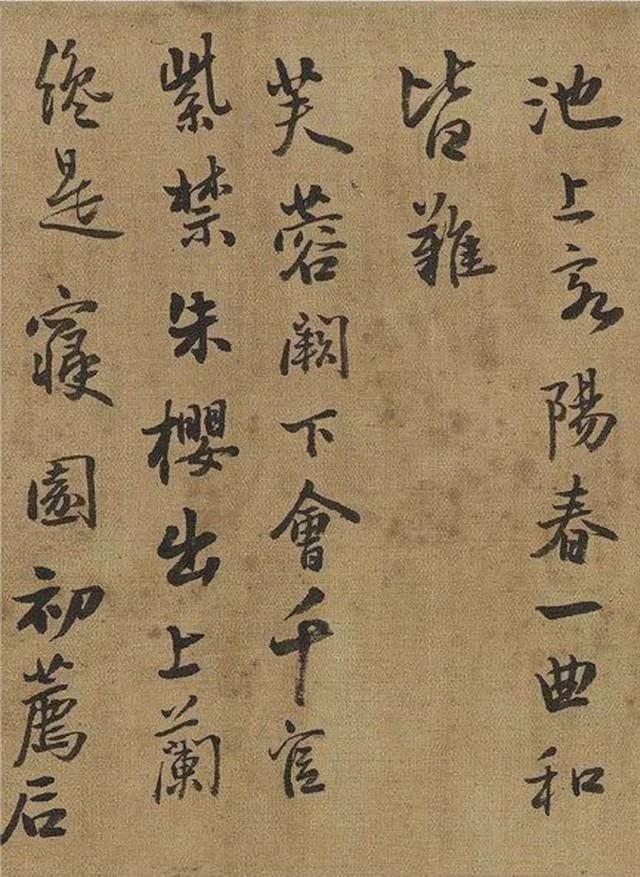 池上客陽春一曲和
皆難
芙蓉闕下會千官
紫禁朱櫻出上蘭
纔是寢園初薦后